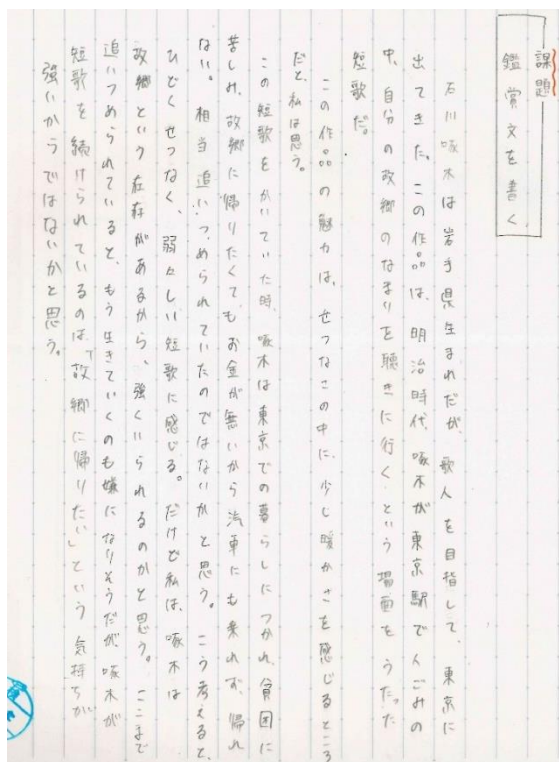 課題
鑑賞文を書く
石川啄木は岩手県生まれだが、歌人を目指して、東京に
出てきた。この作品は、明治時代、啄木が東京駅で人ごみの
中、自分の故郷のなまりを聴きに行くという場面をうたった
短歌だ。
この作品の魅力は、せつなさの中に、少し暖かさを感じるところ
だと、私は思う。
この短歌をかいていた時、啄木は東京での暮らしにつかれ、貧困に
苦しみ、故郷に帰りたくてもお金が無いから汽車にも乗れず、帰れ
ない。相当追いつめられていたのではないかと思う。こう考えると、
ひどくせつなく、弱々しい短歌に感じる。だけど私は、啄木は
故郷という存在があるから、強くいられるのかと思う。ここまで
追いつめられていると、もう生きていくのも嫌になりそうだが、啄木が
短歌を続けられているのは、「故郷に帰りたい」という気持ちが
強いからではないかと思う。